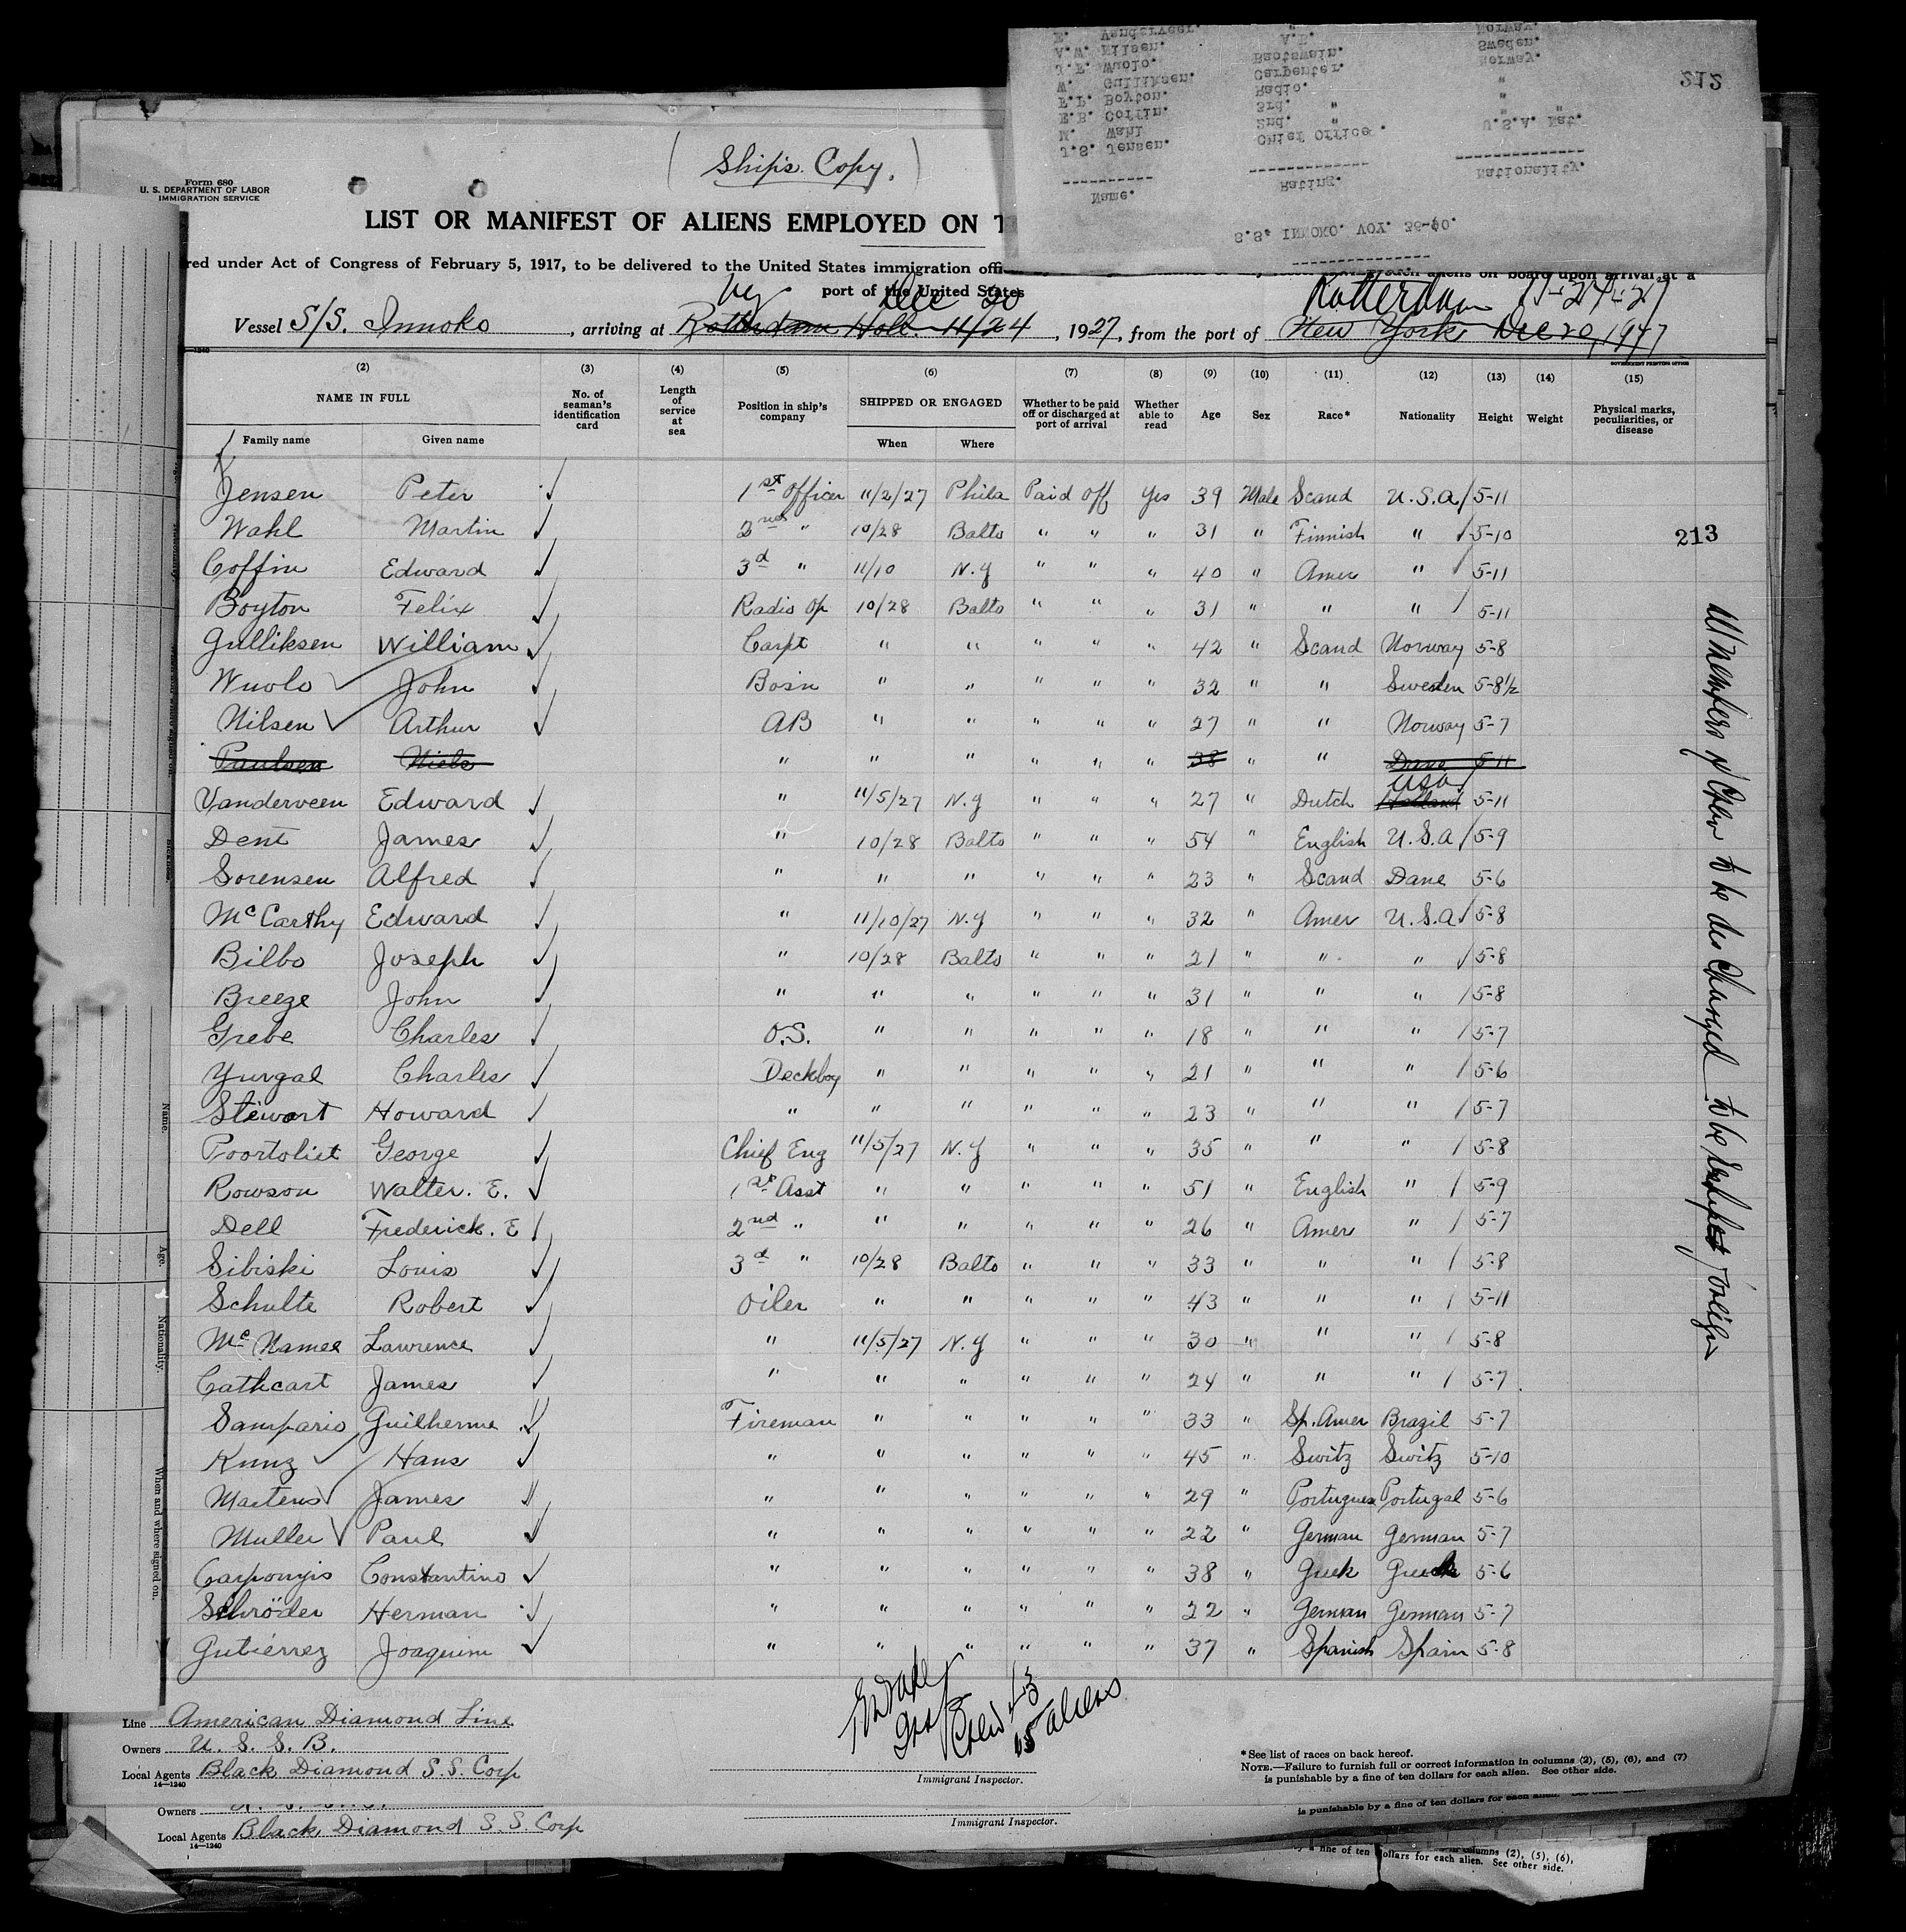 E. Vanderveer. A.B. Norway.
A.W. Nilsen. Baotswain. Sweden.
J.E. Wuolo. Carpenter. Norway.
W. Gulliksen. Radio. "
F.P. Boyton. 3rd. " "
E.B. Coffin. 2nd. " " "
M. Wahl Chief Office. U.S.A. Nat.
J.S. Jensen.
Name. Rating. Nationality.
S.S. INNOKO. VOY. 36-40.
212
(Ship's Copy.)
Form 680
U. S. DEPARTMENT OF LABOR
IMMIGRATION SERVICE
LIST OR MANIFEST OF ALIENS EMPLOYED ON T
red under Act of Congress of February 5, 1917, to be delivered to the United States immigration offi
aliens on board upon arrival at a
port of the United States
Ny Dec 20 Rotterdam 11-24-27
Vessel S/S. Innoko, arriving at Rotterdam Holl. 11/24, 1927, from the port of New York Dec 20, 1927
GOVERNMENT PRINTING OFFICE
(2) (3) (4) (5) (6) (7) (8) (9) (10) (11) (12) (13) (14) (15)
NAME IN FULL No. of seaman's identification card Length of service at sea Position in ship's company SHIPPED OR ENGAGED Whether to be paid off or discharged at port of arrival Whether able to read Age Sex Race* Nationality Height Weight Physical marks, peculiarities, or disease
Family name Given name When Where
Jensen Peter 1st Officer 11/2/27 Phila Paid off Yes 39 Male Scand U.S.A 5-11
Wahl Martin 2nd " 10/28 Balto " " " 31 " Finnish " 5-10
213
Coffin Edward 3d " 11/10 N.Y " " " 40 " Amer " 5-11
Boyton Felix Radio Op 10/28 Balto " " " 31 " " " 5-11
Gulliksen William Carpt " " " " " 42 " Scand Norway 5-8
Wuolo John Bosn " " " " " 32 " " Sweden 5-8½
Nilsen Arthur AB " " " " " 27 " " Norway 5-7
Paulsen Niels " " " " " " 38 " " Dane 5-11
USA
Vanderveen Edward " 11/5/27 N.Y " " " 27 " Dutch Holland 5-11
Dent James " 10/28 Balto " " " 54 " English U.S.A 5-9
Sorensen Alfred " " " " " " 23 " Scand Dane 5-6
McCarthy Edward " 11/10/27 N.Y " " " 32 " Amer U.S.A 5-8
Bilbo Joseph " 10/28 Balto " " " 21 " " " 5-8
Breeze John " " " " " " 31 " " " 5-8
Grebe Charles O.S. " " " " " 18 " " " 5-7
Yurgal Charles Deckboy " " " " " 21 " " " 5-6
Stewart Howard " " " " " " 23 " " " 5-7
Poortoliet George Chief Eng 11/5/27 N.Y " " " 35 " " " 5-8
Rowson Walter. E. 1st Asst " " " " " 51 " English " 5-9
Dell Frederick. E 2nd " " " " " " 26 " Amer " 5-7
Sibiski Louis 3d " 10/28 Balto " " " 33 " " " 5-8
Schulte Robert Oiler " " " " " 43 " " " 5-11
McNamee Lawrence " 11/5/27 N.Y " " " 30 " " " 5-8
Cathcart James " " " " " " 24 " " " 5-7
Sampario Guilherme Fireman " " " " " 33 " Sp. Amer Brazil 5-7
Kunz Hans " " " " " " 45 " Switz Switz 5-10
Martens James " " " " " " 29 " Portuguese Portugal 5-6
Muller Paul " " " " " " 22 " German German 5-7
Carponyis Constantino " " " " " " 38 " Greek Greek 5-6
Schröder Herman " " " " " " 22 " German German 5-7
Gutiérrez Joaquim " " " " " " 37 " Spanish Spain 5-8
All members of Crew to be discharged to be
Crew 43
15 aliens
Line American Diamond Line
Owners U. S. S. B.
Local Agents Black Diamond S.S. Corp
14—1240
Immigrant Inspector.
*See list of races on back hereof.
NOTE.—Failure to furnish full or correct information in columns (2), (5), (6), and (7)
is punishable by a fine of ten dollars for each alien. See other side.
Owners U. S. S. B.
Local Agents Black Diamond S.S. Corp
14—1240
Immigrant Inspector.
is punishable by a fine of ten dollars for each alien.
columns (2), (5), (6),
by a fine of ten dollars for each alien. See other side.
Name.
Age.
Nationality.
When and where signed on.